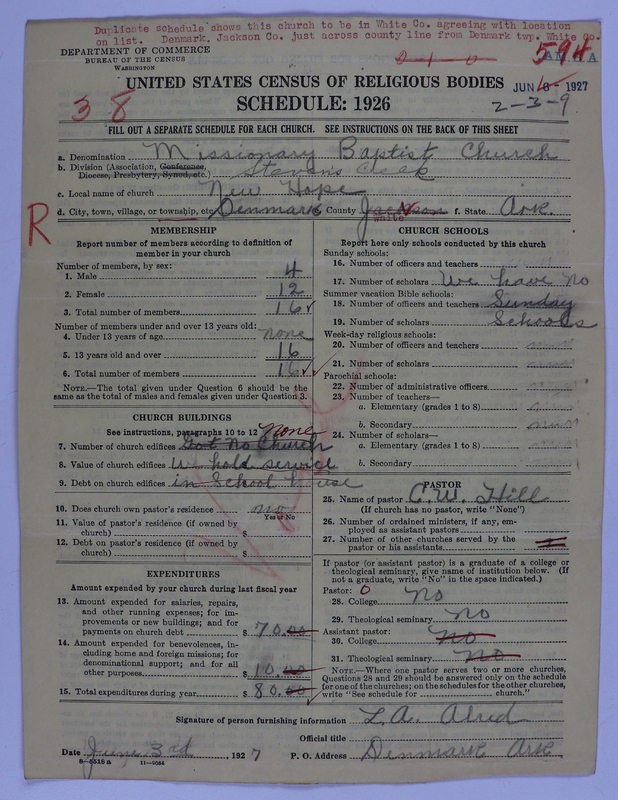 Duplicate schedule shows this church to be in White Co. agreeing with location
on list. Denmark, Jackson Co. just across county line from Denmark twp. White Co.
DEPARTMENT OF COMMERCE
BUREAU OF THE CENSUS
WASHINGTON
2-1-0
594 A
38
UNITED STATES CENSUS OF RELIGIOUS BODIES
JUN 1927
SCHEDULE: 1926
2-3-9
FILL OUT A SEPARATE SCHEDULE FOR EACH CHURCH. SEE INSTRUCTIONS ON THE BACK OF THIS SHEET
a. Denomination Missionary Baptist Church
b. Division (Association, Conference, Diocese, Presbytery, Synod, etc.) Steven's Creek
c. Local name of church New Hope
R
d. City, town, village, or township, etc. Denmark County Jackson White f. State Ark.
MEMBERSHIP
Report number of members according to definition of
member in your church
Number of members, by sex:
1. Male 4
2. Female 12
3. Total number of members 16
Number of members under and over 13 years old:
4. Under 13 years of age none
5. 13 years old and over 16
6. Total number of members 16
NOTE.—The total given under Question 6 should be the
same as the total of males and females given under Question 3.
CHURCH BUILDINGS
See instructions, paragraphs 10 to 12 None
7. Number of church edifices Got No Church
8. Value of church edifices We hold service
9. Debt on church edifices in School House
10. Does church own pastor's residence no
Yes or No
11. Value of pastor's residence (if owned by
church) $
12. Debt on pastor's residence (if owned by
church) $
EXPENDITURES
Amount expended by your church during last fiscal year
13. Amount expended for salaries, repairs,
and other running expenses; for im-
provements or new buildings; and for
payments on church debt $ 70.00
14. Amount expended for benevolences, in-
cluding home and foreign missions; for
denominational support; and for all
other purposes $ 10.00
15. Total expenditures during year $ 80.00
CHURCH SCHOOLS
Report here only schools conducted by this church
Sunday schools:
16. Number of officers and teachers
17. Number of scholars We have no
Summer vacation Bible schools:
18. Number of officers and teachers Sunday
19. Number of scholars Schools
Week-day religious schools:
20. Number of officers and teachers
21. Number of scholars
Parochial schools:
22. Number of administrative officers
23. Number of teachers—
a. Elementary (grades 1 to 8)
b. Secondary
24. Number of scholars—
a. Elementary (grades 1 to 8)
b. Secondary
PASTOR
25. Name of pastor C. W. Hill
(If church has no pastor, write "None")
26. Number of ordained ministers, if any, em-
ployed as assistant pastors
27. Number of other churches served by the
pastor or his assistants
If pastor (or assistant pastor) is a graduate of a college or
theological seminary, give name of institution below. (If
not a graduate, write "No" in the space indicated.)
Pastor: 0
28. College No
29. Theological seminary No
Assistant pastor:
30. College No
31. Theological seminary No
NOTE.—Where one pastor serves two or more churches,
Questions 28 and 29 should be answered only on the schedule
for one of the churches; on the schedules for the other churches,
write "See schedule for church."
Signature of person furnishing information L. A. Alred
Official title
Date June 3rd, 1927
P. O. Address Denmark Ark.
8-5518 a 11-9064